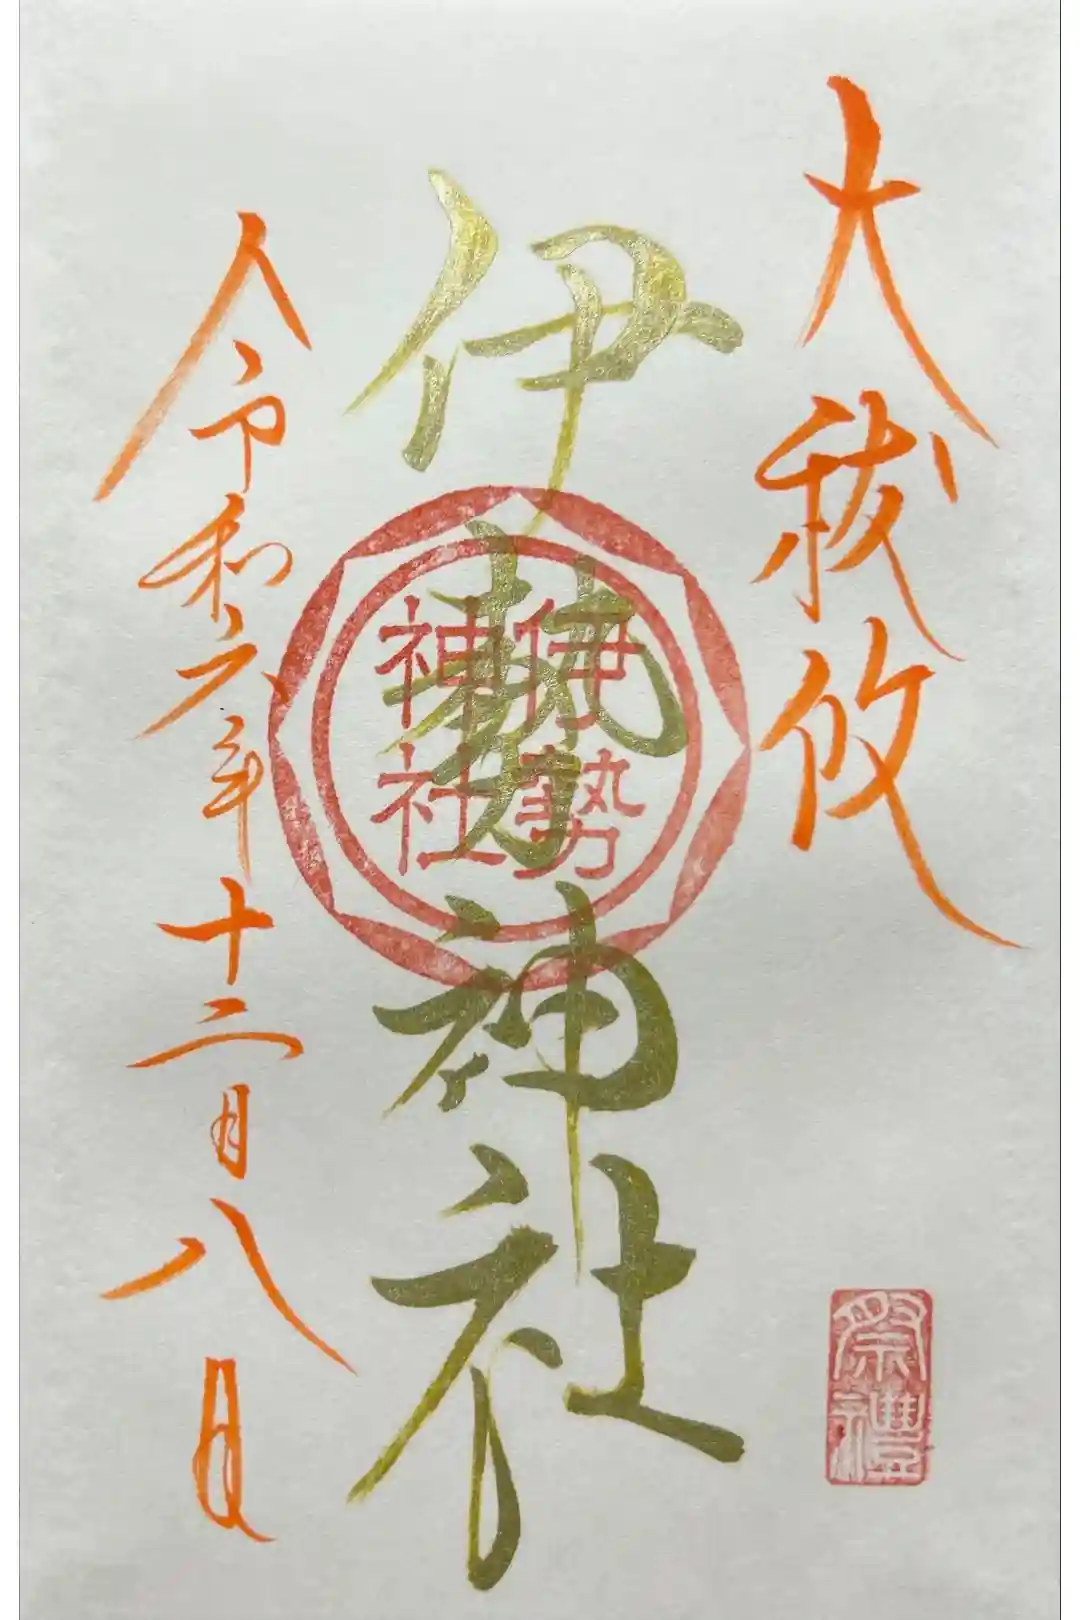 大祓攸
伊勢神社
伊勢
神社
令和六年十二月八日
祭禮